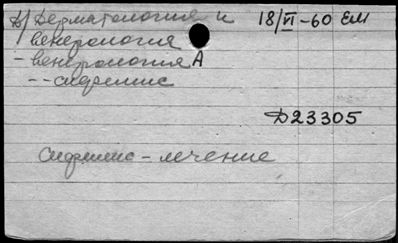 Д/ Дерматология и 18/VI-60 ЕМ
венерология
- венерология А
-- сифилис
Д23305
Сифилис - лечение